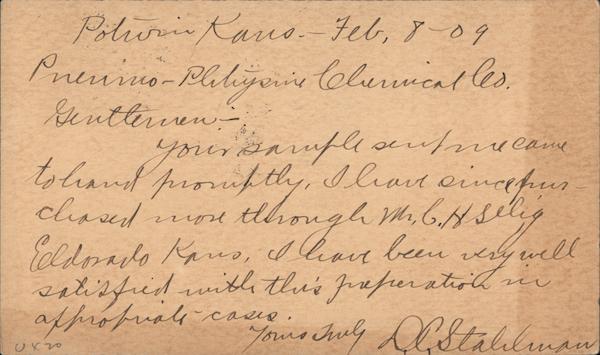 Potwin Kans.- Feb, 8-09
Pneumo-Phthysine Chemical Co.
Gentlemen-
Your sample sent me came
to hand promptly, I have since pur-
chased more through Mr, C. H Selig
Eldorado Kans, I have been very well
satisfied with this preperation in
appropriate cases.
Yours truly D. C. Stahlman